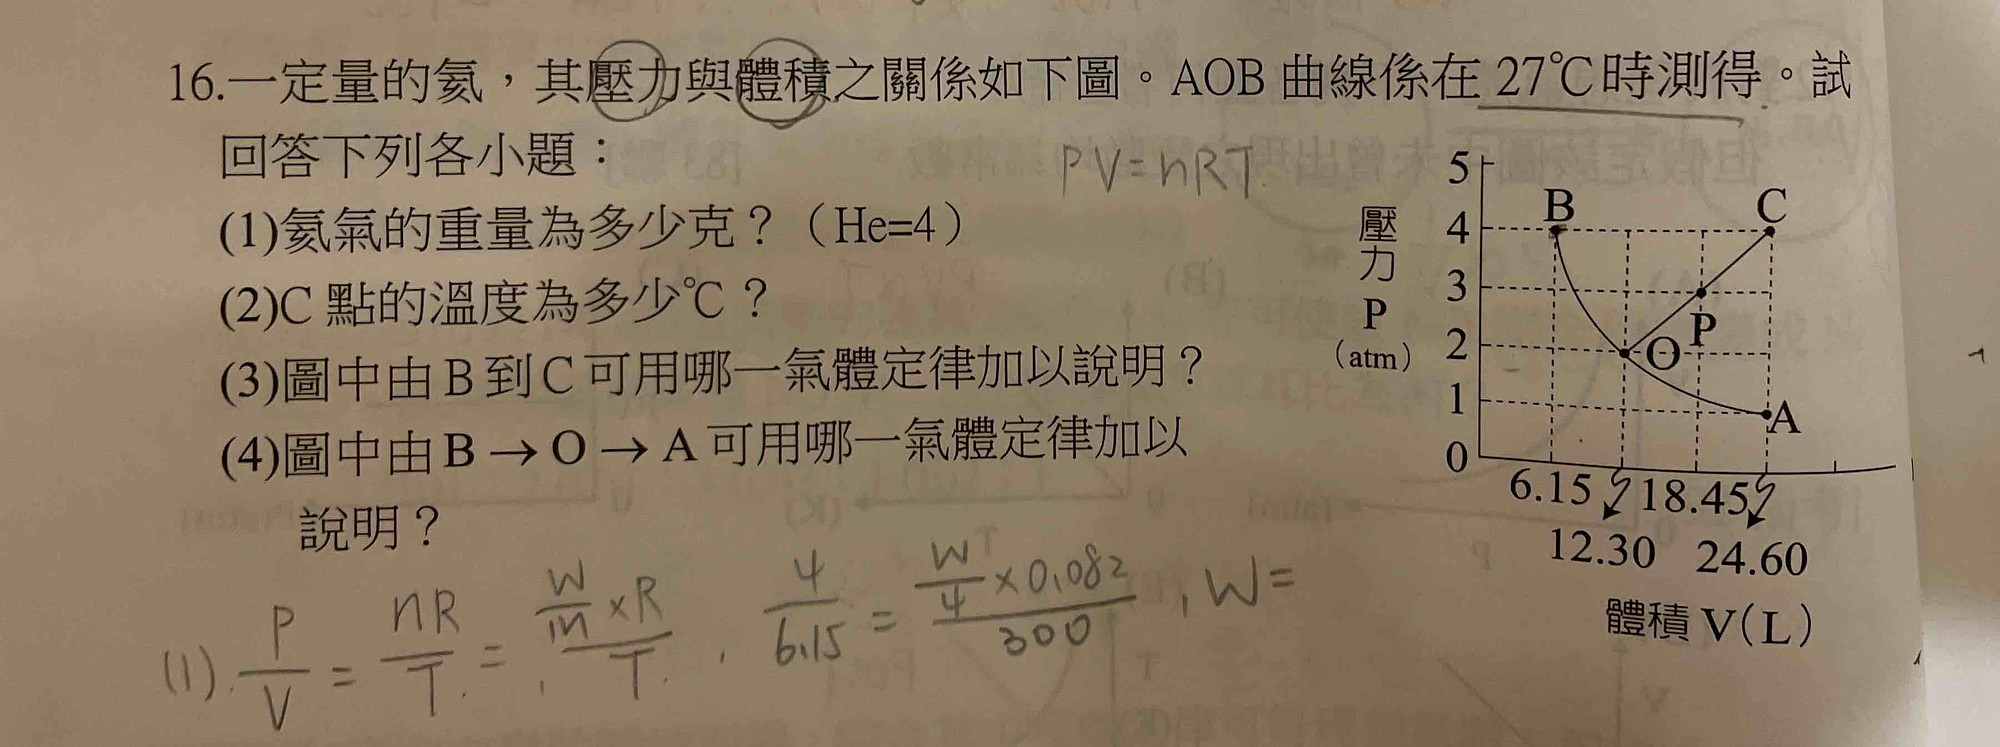 16.一定量的氦，其壓力與體積之關係如下圖。AOB 曲線係在 27℃時測得。試
回答下列各小題：
PV=nRT
(1)氦氣的重量為多少克？（He=4）
(2)C 點的溫度為多少℃？
(3)圖中由 B 到 C 可用哪一氣體定律加以說明？
(4)圖中由 B → O → A 可用哪一氣體定律加以
說明？
壓力 P (atm)
5
4
3
2
1
0
B
C
P
O
A
6.15 18.45
12.30 24.60
體積 V(L)
(1). P/V = nR/T = W/m×R/T , 4/6.15 = W/4×0.082/300 , W=